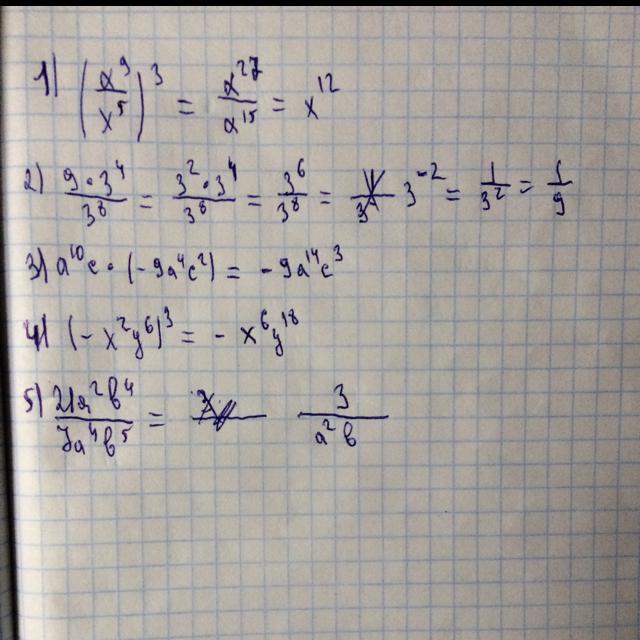 1) (x⁹/x⁵)³ = x²⁷/x¹⁵ = x¹²
2) 9·3⁴/3⁸ = 3²·3⁴/3⁸ = 3⁶/3⁸ = 3⁻² = 1/3² = 1/9
3) a¹⁰c·(-9a⁴c²) = -9a¹⁴c³
4) (-x²y⁶)³ = -x⁶y¹⁸
5) 21a²b⁴/7a⁴b⁵ = 3/a²b